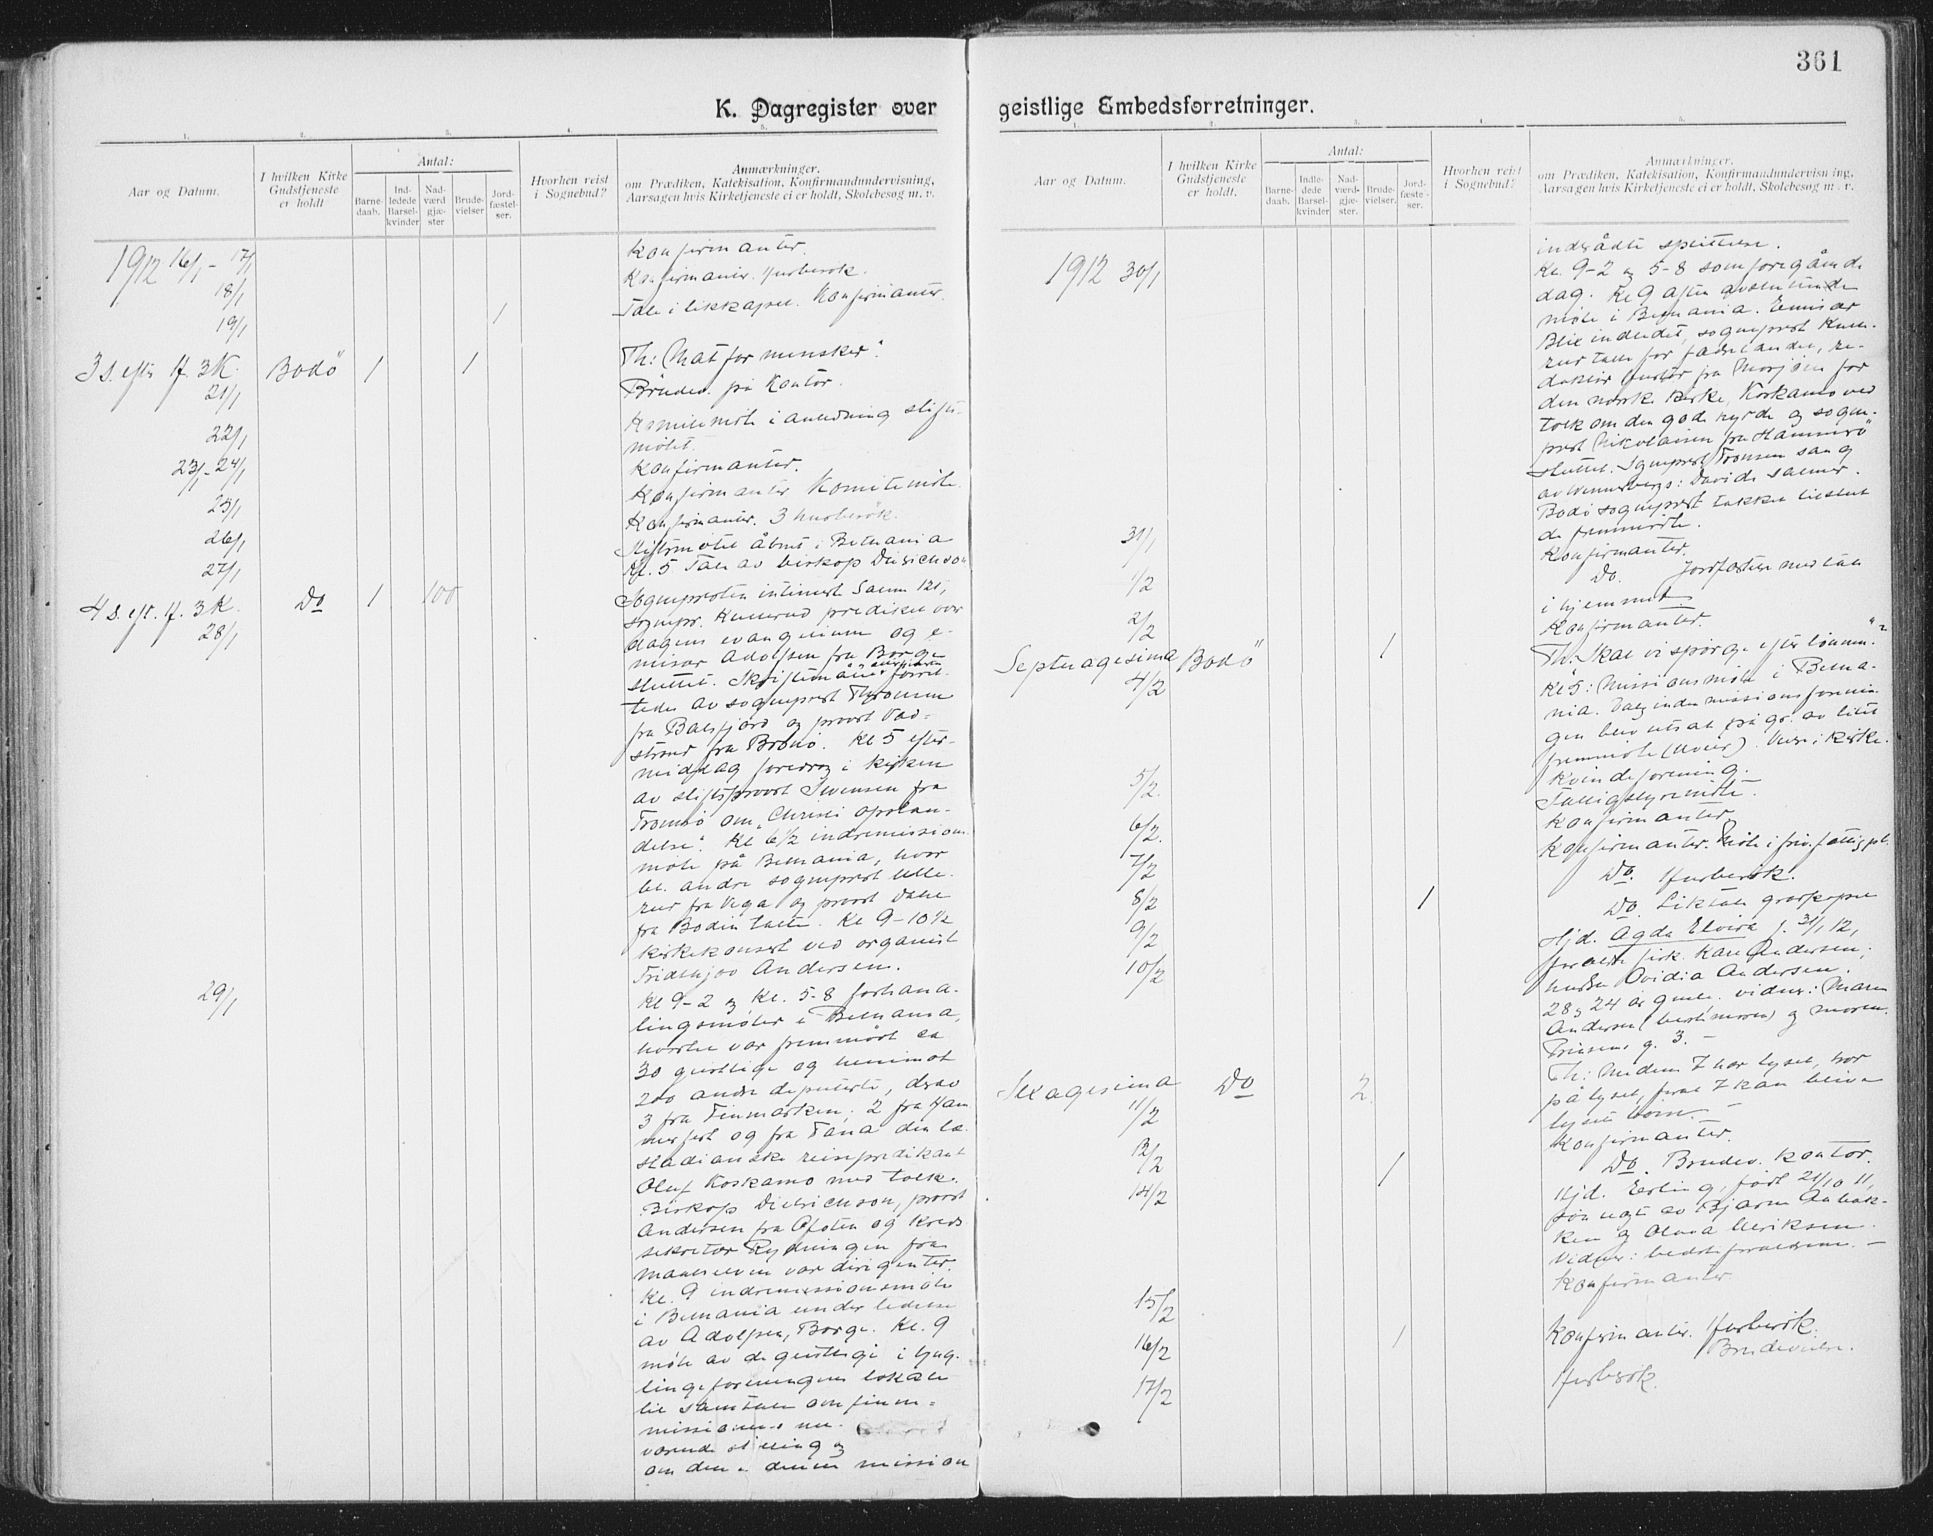 361
K. Dagregister over
geistlige Embedsforretninger.
1. 2. 3. 4. 5.
Aar og Datum.
I hvilken Kirke Gudstjeneste er holdt
Antal:
Barnedaab.
Indledede Barselkvinder
Nadværdgjæster
Brudevielser
Jordfæstelser.
Hvorhen reist i Sognebud?
Anmærkninger.
om Prædiken, Katekisation, Konfirmandundervisning,
Aarsagen hvis Kirketjeneste ei er holdt, Skolebesøg m. v.
1912 16/1 - 17/1 Konfirmanter.
18/1 Konfirmanter. Husbesök.
19/1 1 Tale i likkapel. Konfirmanter.
3 s. efter H. 3 K. Bodö 1 1 Th: Mat for mensker".
21/1 Brudev. på Kontor.
22/1 Komitemöte i anledning stifts-
mötet.
23/1 - 24/1 Konfirmanter.
25/1 Konfirmanter Komitemöte.
26/1 Konfirmanter. 3 husbesök.
27/1 Stiftsmötet åbnet i Betania
Kl. 5. Tale av biskop Dietrichson
4 s. eft. H. 3 K. Do 1 100 Sognepresten intimert Salme 121,
28/1 sognepr. prediket over
dagens evangelium og e-
missær Adolfsen fra Borge
sluttet. Skriftemål
tedes av sogneprest
fra Balsfjord og provst Vad-
strand fra Brönö. Kl 5 efter-
middag foredrag i kirken
av stiftsprovst Svensen fra
Tromsö om "Christi opstan-
delse". Kl 6½ indremissions-
möte på Betania, hvor
bl. andre sogneprest
fra Vega og provst
fra Bodin talte. Kl 9-10½
kirkekonsert ved organist
Fridthjov Andersen.
29/1 Kl 9-2 og Kl. 5-8 forhand-
lingsmöter i Betania,
hvortil var fremmött ca
30 geistlige og henimot
200 andre deputerte, derav
3 fra Finmarken; 2 fra Ham
merfest og fra Tana den læ-
stadianske reisepredikant
Oluf Koskamo med tolk.
Biskop Dietrichson, provst
Andersen fra Ofoten og kreds-
sekretær Rydningen fra
Maalselven var dirigenter.
Kl. 9 indremissionsmöte
i Betania under ledelse
av Adolfsen, Borge. Kl. 9
möte av de geistlige i yng-
lingeforeningens lokale
til samtale om finne-
missionens nu-
værende stilling og
om den i denne mission
1. 2. 3. 4. 5.
Aar og Datum.
I hvilken Kirke Gudstjeneste er holdt.
Antal:
Barnedaab.
Indledede Barselkvinder
Nadværdgjæster.
Brudevielser.
Jordfæstelser.
Hvorhen reist i Sognebud?
Anmærkninger.
om Prædiken, Katekisation, Konfirmandundervisning,
Aarsagen hvis Kirketjeneste ei er holdt, Skolebesøg m. v.
indtrådte splittelse.
1912 30/1 Kl. 9-2 og 5-8 som foregående
dag. Kl 9 aften avsluttende
möte i Betania. Emissær
Blix indledet, sogneprest
talte for fædrelandet, re-
daktör fra Mosjöen for
den norske kirke, Koskamo ved
tolk om den gode hyrde og sogne-
prest Nikolaisen fra Hammerö
sluttet. Sogneprest sang
av Wennerbergs: Davids salmer.
Bodö sogneprest takket tilslut
de fremmötte.
31/1 Konfirmanter.
1/2 Do. Jordfæstelse med tale
i hjemmet
2/2 Konfirmanter.
Septuagesima Bodö 1 Th: Skal vi spörge efter lönnen?"
4/2 Kl 5: Missionsmöte i Beta-
nia. Valg inden missionsforenin
gen blev utsat på gr. av litet
fremmöte (uveir). Vers i kirke.
Kvindeforening.
5/2. Fattigstyremöte.
6/2. Konfirmanter.
7/2 Konfirmanter. Möte i friv. fattigpl.
8/2 1 Do. Husbesök.
9/2 Do. Liktale gravkapel
10/2 Hjd. Agda Elvira f. 31/1 12,
forældre fisk. Kare Andersen,
hustru Ovidia Andersen.
28 og 24 år gamle. vidner: Maren
Andersen (bestemoren) og moren.
g. 3. -
Sexagesima Do 2. Th: Medens I har lyset, tror
11/2 på lyset, forat I kan blive
lysets börn. -
12/2 Konfirmanter.
14/2 1 Do. Brudev. kontor.
Hjd. Erling, född 21/10 11,
sön uegt. av Bjarne
og Ulriksen.
Vidner: bedsteforældrene. -
15/2 Konfirmanter
16/2 1 Konfirmanter. Husbesök.
Brudevielse.
17/2 Husbesök.